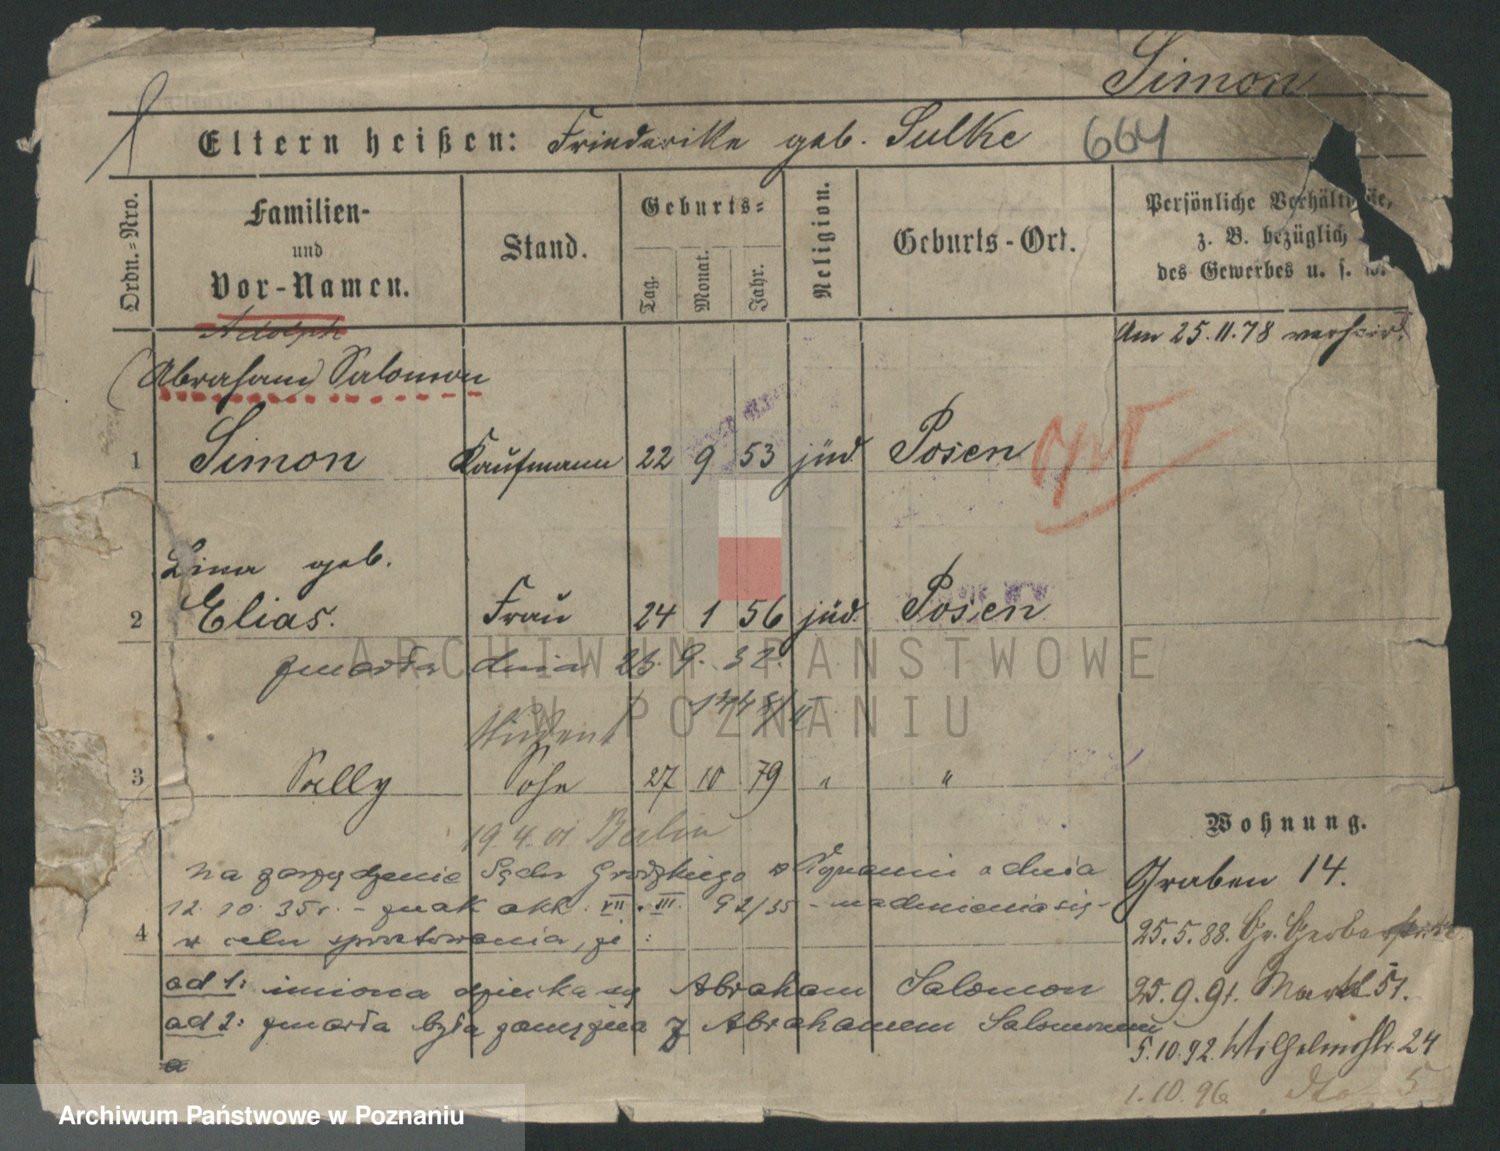 Simon
Eltern heißen: Friederike geb. Sulke 664
Ordn.-Nro.
Familien-
und
Vor-Namen.
Stand.
Geburts-
Tag.
Monat.
Jahr.
Religion.
Geburts-Ort.
Persönliche Verhältnisse,
z. B. bezüglich
des Gewerbes u. s. w.
Adolph
Am 25.11.78 verheir.
(Abraham) Salomon
1 Simon Kaufmann 22 9 53 jüd. Posen
Lina geb.
2 Elias. Frau 24 1 56 jüd. Posen
zmarła dnia 25.9.32.
Student
3 Sally Sohn 27 10 79 " "
19.4.01 Berlin
Wohnung.
Na zarządzenie Sądu Grodzkiego w Poznaniu z dnia
12.10.35r. - znak akt. VII. III. 92/35 - nadmienia się -
4 w celu sprostowania, że:
ad 1: imiona dziecka są Abraham Salomon
ad 2: zmarła była zamężna z Abrahamem Salomonem
Graben 14.
25.5.88. Gr. Gerberstr.
25.9.91. Markt 51.
5.10.92. Wilhelmstr. 24
1.10.96 dto 5
ARCHIWUM PAŃSTWOWE
W POZNANIU
Archiwum Państwowe w Poznaniu